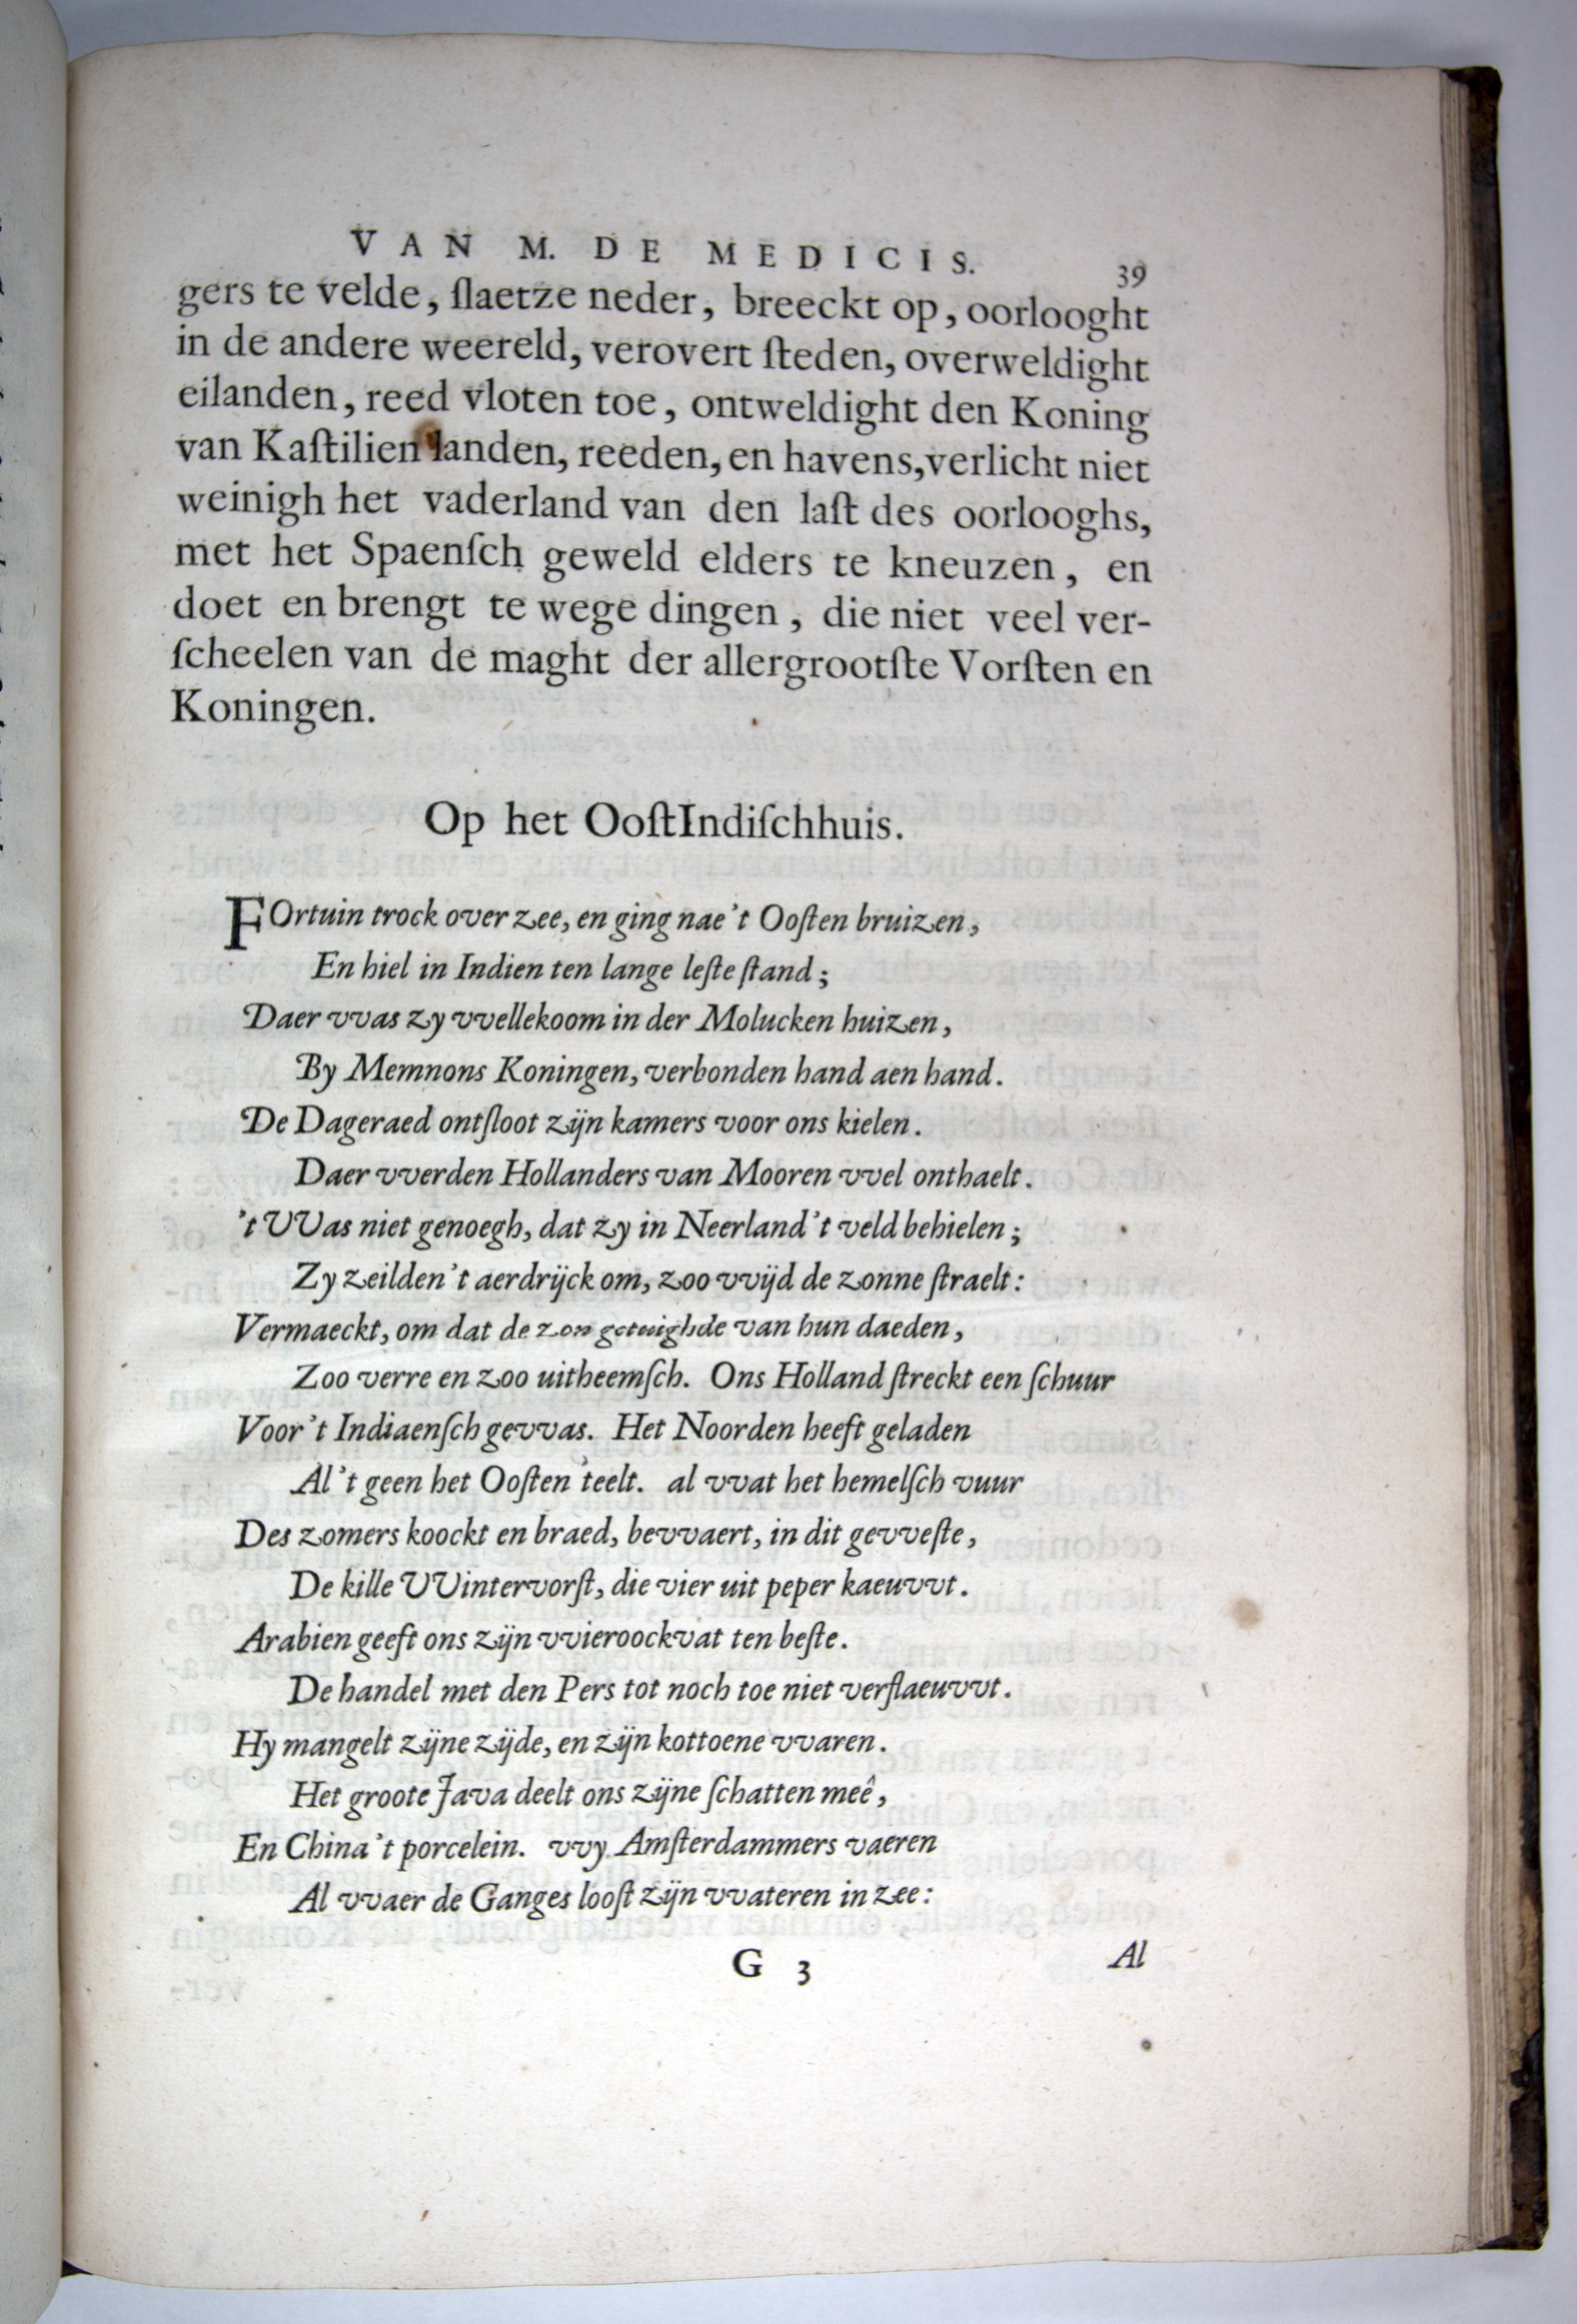 VAN M. DE MEDICIS. 39
gers te velde, ſlaetze neder, breeckt op, oorlooght
in de andere weereld, verovert ſteden, overweldight
eilanden, reed vloten toe, ontweldight den Koning
van Kaſtilien landen, reeden, en havens, verlicht niet
weinigh het vaderland van den laſt des oorlooghs,
met het Spaenſch geweld elders te kneuzen, en
doet en brengt te wege dingen, die niet veel ver-
ſcheelen van de maght der allergrootſte Vorſten en
Koningen.
Op het OoſtIndiſchhuis.
FOrtuin trock over zee, en ging nae't Ooſten bruizen,
En hiel in Indien ten lange leſte ſtand;
Daer vvas zy vvellekoom in der Molucken huizen,
By Memnons Koningen, verbonden hand aen hand.
De Dageraed ontſloot zijn kamers voor ons kielen.
Daer vverden Hollanders van Mooren vvel onthaelt.
't VVas niet genoegh, dat zy in Neerland 't veld behielen;
Zy zeilden 't aerdrijck om, zoo vvijd de zonne ſtraelt:
Vermaeckt, om dat de zon getuighde van hun daeden,
Zoo verre en zoo uitheemſch. Ons Holland ſtreckt een ſchuur
Voor 't Indiaenſch gevvas. Het Noorden heeft geladen
Al 't geen het Ooſten teelt. al vvat het hemelſch vuur
Des zomers koockt en braed, bevvaert, in dit gevveſte,
De kille VVintervorſt, die vier uit peper kaeuvvt.
Arabien geeft ons zijn vvieroockvat ten beſte.
De handel met den Pers tot noch toe niet verſlaeuvvt.
Hy mangelt zijne zijde, en zijn kottoene vvaren.
Het groote Java deelt ons zijne ſchatten meê,
En China 't porcelein. vvy Amſterdammers vaeren
Al vvaer de Ganges looſt zijn vvateren in zee:
G 3 Al